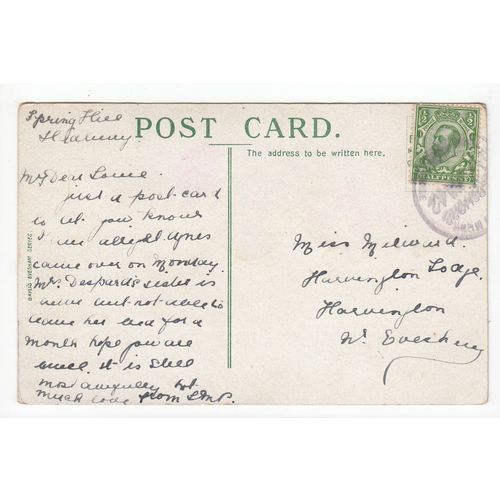 Spring Hill
POST CARD.
The address to be written here.
HALFPENNY
My Dear
just a post-card
to let you know
I am alright Agnes
came over on Monday
Mrs. Despard's sister is
but not able to
leave her bed for a
month hope you are
well. it is still
most awfully hot
much love from
Miss Milward.
Harvington Lodge.
Harvington
Nr Evesham
DAVID EVESHAM SERIES.